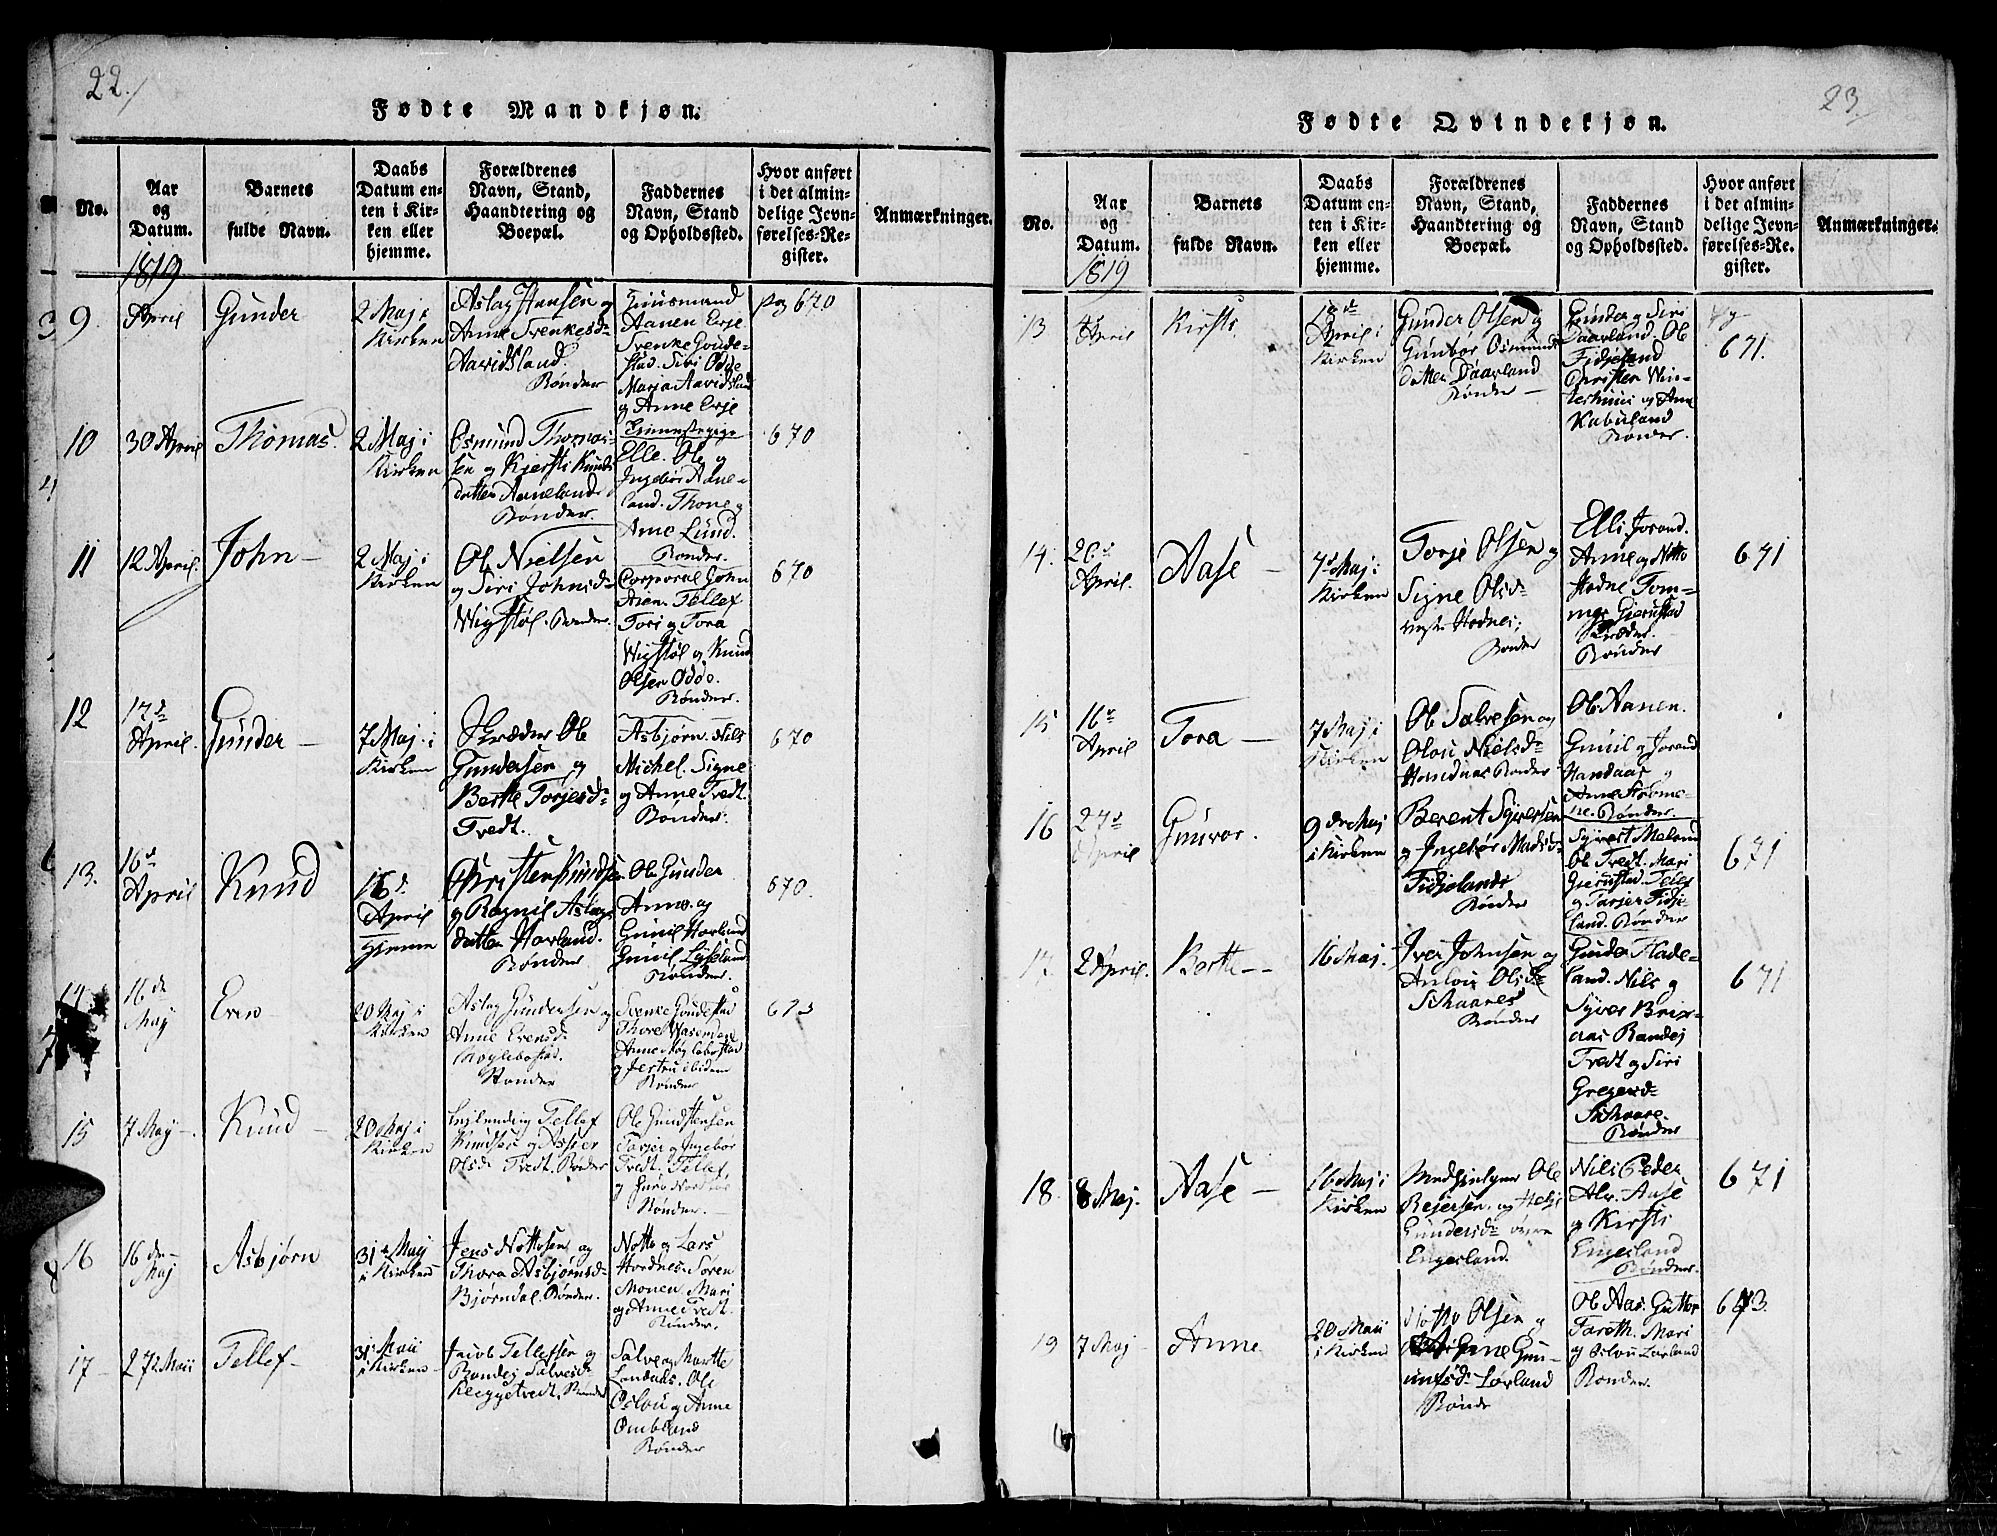 22.
Fødte Mandkjøn.
No.
Aar
og
Datum.
Barnets
fulde Navn.
Daabs
Datum en-
ten i Kir-
ken eller
hjemme.
Forældrenes
Navn, Stand,
Haandtering og
Boepæl.
Faddernes
Navn, Stand
og Opholdssted.
Hvor anført
i det almin-
delige Jevn-
førelses-Re-
gister.
Anmærkninger.
1819
9.
April
Gunder
2 Maj i
Kirken
Aslag Hansen og
Anne Svenkesd.
Aavidsland.
Bønder
Aanen Erje
Svenke Goude-
stad. Siri Odde
Marja Aavidsland
og Anne Erje
Pag 670
10
30 April
Thomas
2 Maj i
Kirken
Osmund Thomas-
sen og Kjersti Knuds
datter Aaneland
Bønder.
Elle. Ole og
Ingebor Aane-
land. Thone og
Anne Lund.
Bønder.
670
11
12 April.
John
2 Maj i
Kirken
Ole Nielsen
og Siri Johnsd.
Wigstøl. Bønder.
Corporal John
Aien. Tellef
Tori og Tora
Wigstøl og Knud
Olsen Odde.
Bønder.
670
12
17de
April.
Gunder
7 Maj i
Kirken
Skræder Ole
Gundersen og
Berthe Torjesd.
Tvedt.
Asbjørn. Nils
Michel. Signe
og Anne Tvedt.
Bønder.
670
13.
16d
April
Knud
16d.
April
Hjemme
Christen Knudsen
og Ragnil Aslags
datter Hovland.
Bønder
Ole Gunder
Anne. og
Gunil Hovland
Gunil Lyseland
Bønder.
670.
14
16de
Maj
Even
20 Maj i
Kirken
Aslag Gundersen og
Anne Evensd.
Møglebostad.
Bønder
Svenke Goudestad
Thore Wasenden
Anne Møglebostad
og Jertru ibidem
Bønder
673
15
7 Maj
Knud
20 Maj i
Kirken
Tellef
Knudsen og Assier
Olsd. Tvedt. Bønder
Ole Gundstensen
Tarjer og Ingebor
Tvedt. Tellef
Bønder.
16
16de
Maj
Asbjørn
31te Maij
i Kirken
Jens Nottosen og
Thora Asbjørnsd.
Bjørndal. Bønder.
Notto og Lars
Hordnes. Søren
Monen. Mari
og Anne Tvedt.
Bønder.
17
27de Maii
Tellef
31te Maii
i Kirken
Jacob Tellefsen og
Randej Salvesd.
Reggetvedt. Bønder
Salve og Marthe
Landaas. Ole
Oslou og Anne
Ombland
Bønder
23.
Fødte Qvindekjøn.
No.
Aar
og
Datum.
Barnets
fulde Navn.
Daabs
Datum en-
ten i Kir-
ken eller
hjemme.
Forældrenes
Navn, Stand,
Haandtering og
Boepæl.
Faddernes
Navn, Stand
og Opholdssted.
Hvor anført
i det almin-
delige Jevn-
førelses-Re-
gister.
Anmærkninger.
1819
13
April
Kirsti
April i
Kirken
Gunder Olsen og
Gunbor Osmunds
datter Daarland
Bønder
Gunder og Siri
Daarland. Ole
Fidjeland
Christen Win-
terhuus og Anne
Kabuland
Bønder.
671.
14.
April.
Aase
7d Maj i
Kirken
Torje Olsen og
Signe Olsd.
Hodne;
Bønder
Elli. Jorand.
Anne og Notto
Hodne Tom-
Gjerustad
Skræder.
Bønder
671
15
16d
April
Tora
7 Maj i
Kirken
Ole Salvesen og
Olou Nielsd.
Homdnas Bønder
Ole Aanen.
Gunil og Jorand
Handaas og
Anne Homme-
ne. Bønder.
16
27d
April
Gunvor.
9de Maj
i Kirken
Berent Syversen
og Ingebor Madsd.
Fidjeland
Bønder
Syvert Meland
Ole Tvedt. Mari
Gjerustad. Tellef
og Tarjer Fidje-
land. Bønder
671
17.
2 April.
Berthe
16 Maj.
Iver Johnsen og
Anlou Olsd.
Skaares
Bønder
Gunder Flade-
land. Nils og
Syver Brix-
aas Randej
Tvedt og Siri
Gregersd.
Skaare.
Bønder
671
18.
8 Maj.
Aase
16 Maj i
Kirken
Ole
Rejersen. og Helje
Gundersd. øvre
Engesland.
Nils Peder
Alv. Aase
og Kirsti
Engesland
Bønder.
671
19
7 Maj
Anne
20 Maii
i Kirken
Notto Olsen og
Anne Gun-
Lørland
Bønder
Ole Aas. Guttor
Fareth. Mari
og Oslou Lørland
Bønder.
673.